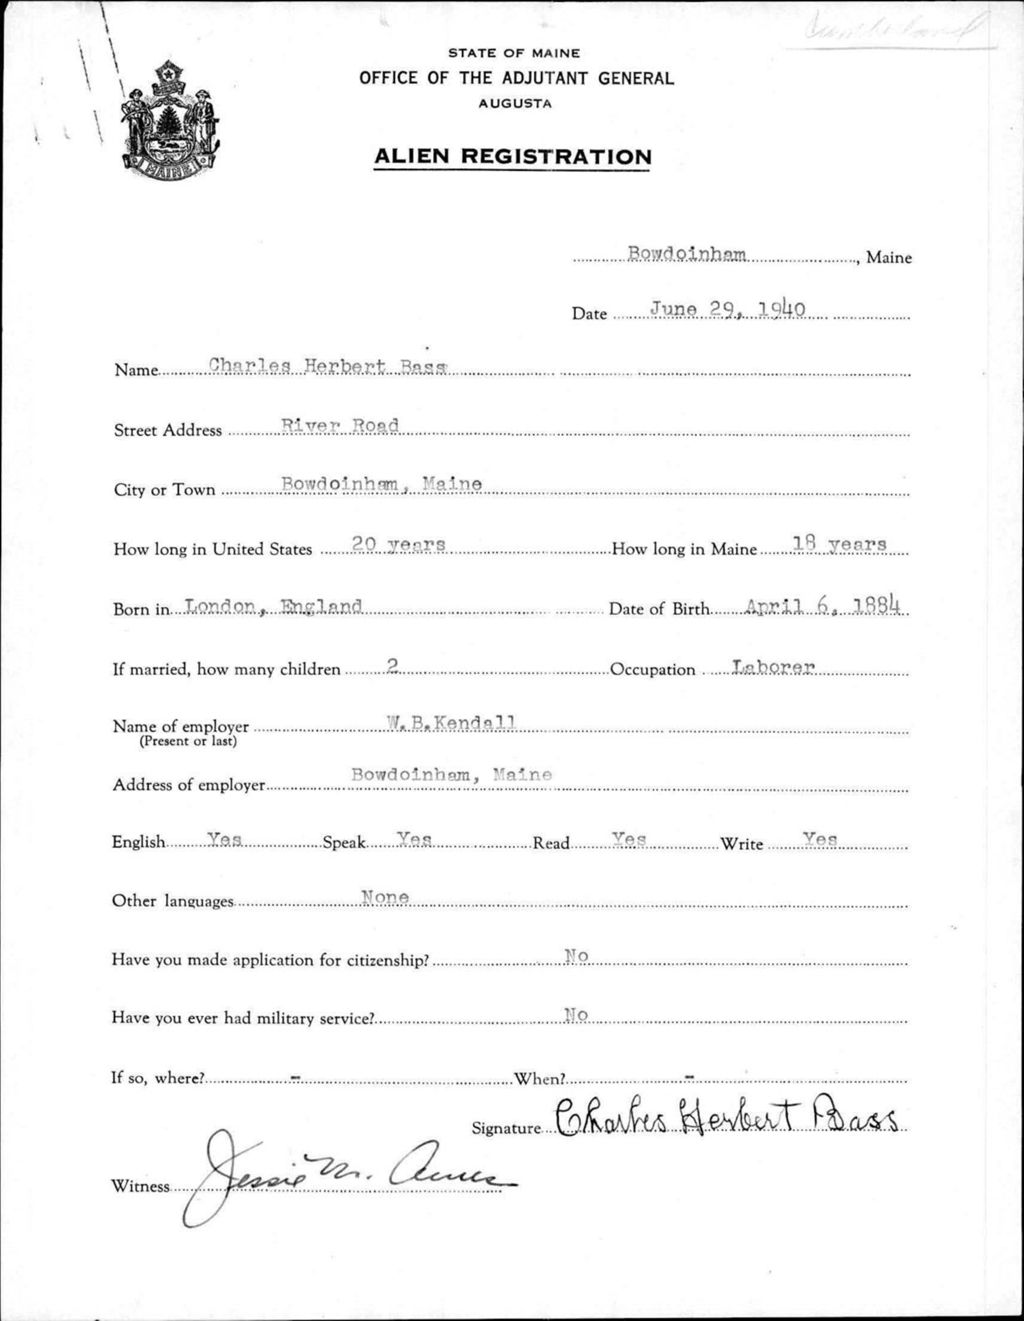 Cumberland
STATE OF MAINE
OFFICE OF THE ADJUTANT GENERAL
AUGUSTA
ALIEN REGISTRATION
MAINE
Bowdoinham, Maine
Date June 29, 1940
Name Charles Herbert Bass
Street Address River Road
City or Town Bowdoinham, Maine
How long in United States 20 years How long in Maine 18 years
Born in London, England Date of Birth April 6, 1884
If married, how many children 2 Occupation Laborer
Name of employer W.B.Kendall
(Present or last)
Address of employer Bowdoinham, Maine
English Yes Speak Yes Read Yes Write Yes
Other languages None
Have you made application for citizenship? No
Have you ever had military service? No
If so, where? - When? -
Signature Charles Herbert Bass
Witness Jessie M. Ames